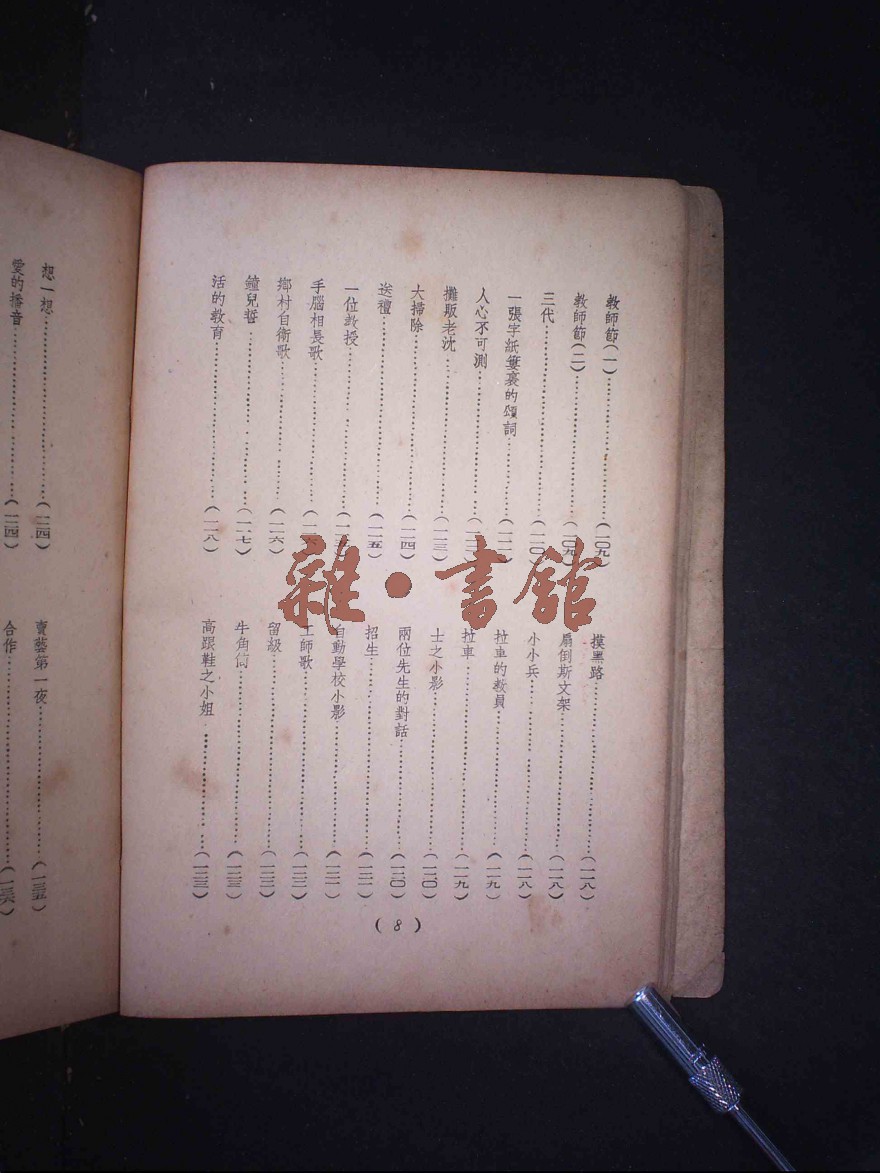 教師節(一)…………(一〇九)
教師節(二)…………(一〇九)
三代…………(一一〇)
一張字紙簍裏的頌詞…………(一一一)
人心不可測…………
攤販老沈…………(一一三)
大掃除…………(一一四)
送禮…………(一一五)
一位教授…………
手腦相長歌…………
鄉村自衛歌…………(一一六)
鐘兒誓…………(一一七)
活的教育…………(一一八)
摸黑路…………(一一八)
扇倒斯文架…………(一一八)
小小兵…………(一一八)
拉車的教員…………(一一九)
拉車…………(一一九)
士之小影…………(一二〇)
兩位先生的對話…………(一二〇)
招生…………(一二一)
自動學校小影…………(一二一)
工師歌…………(一二二)
留級…………
牛角筒…………(一二三)
高跟鞋之小姐…………(一二三)
(8)
想一想…………(一二四)
愛的播音…………(一二四)
賣藝第一夜…………(一三五)
合作…………(一三六)
雜·書館